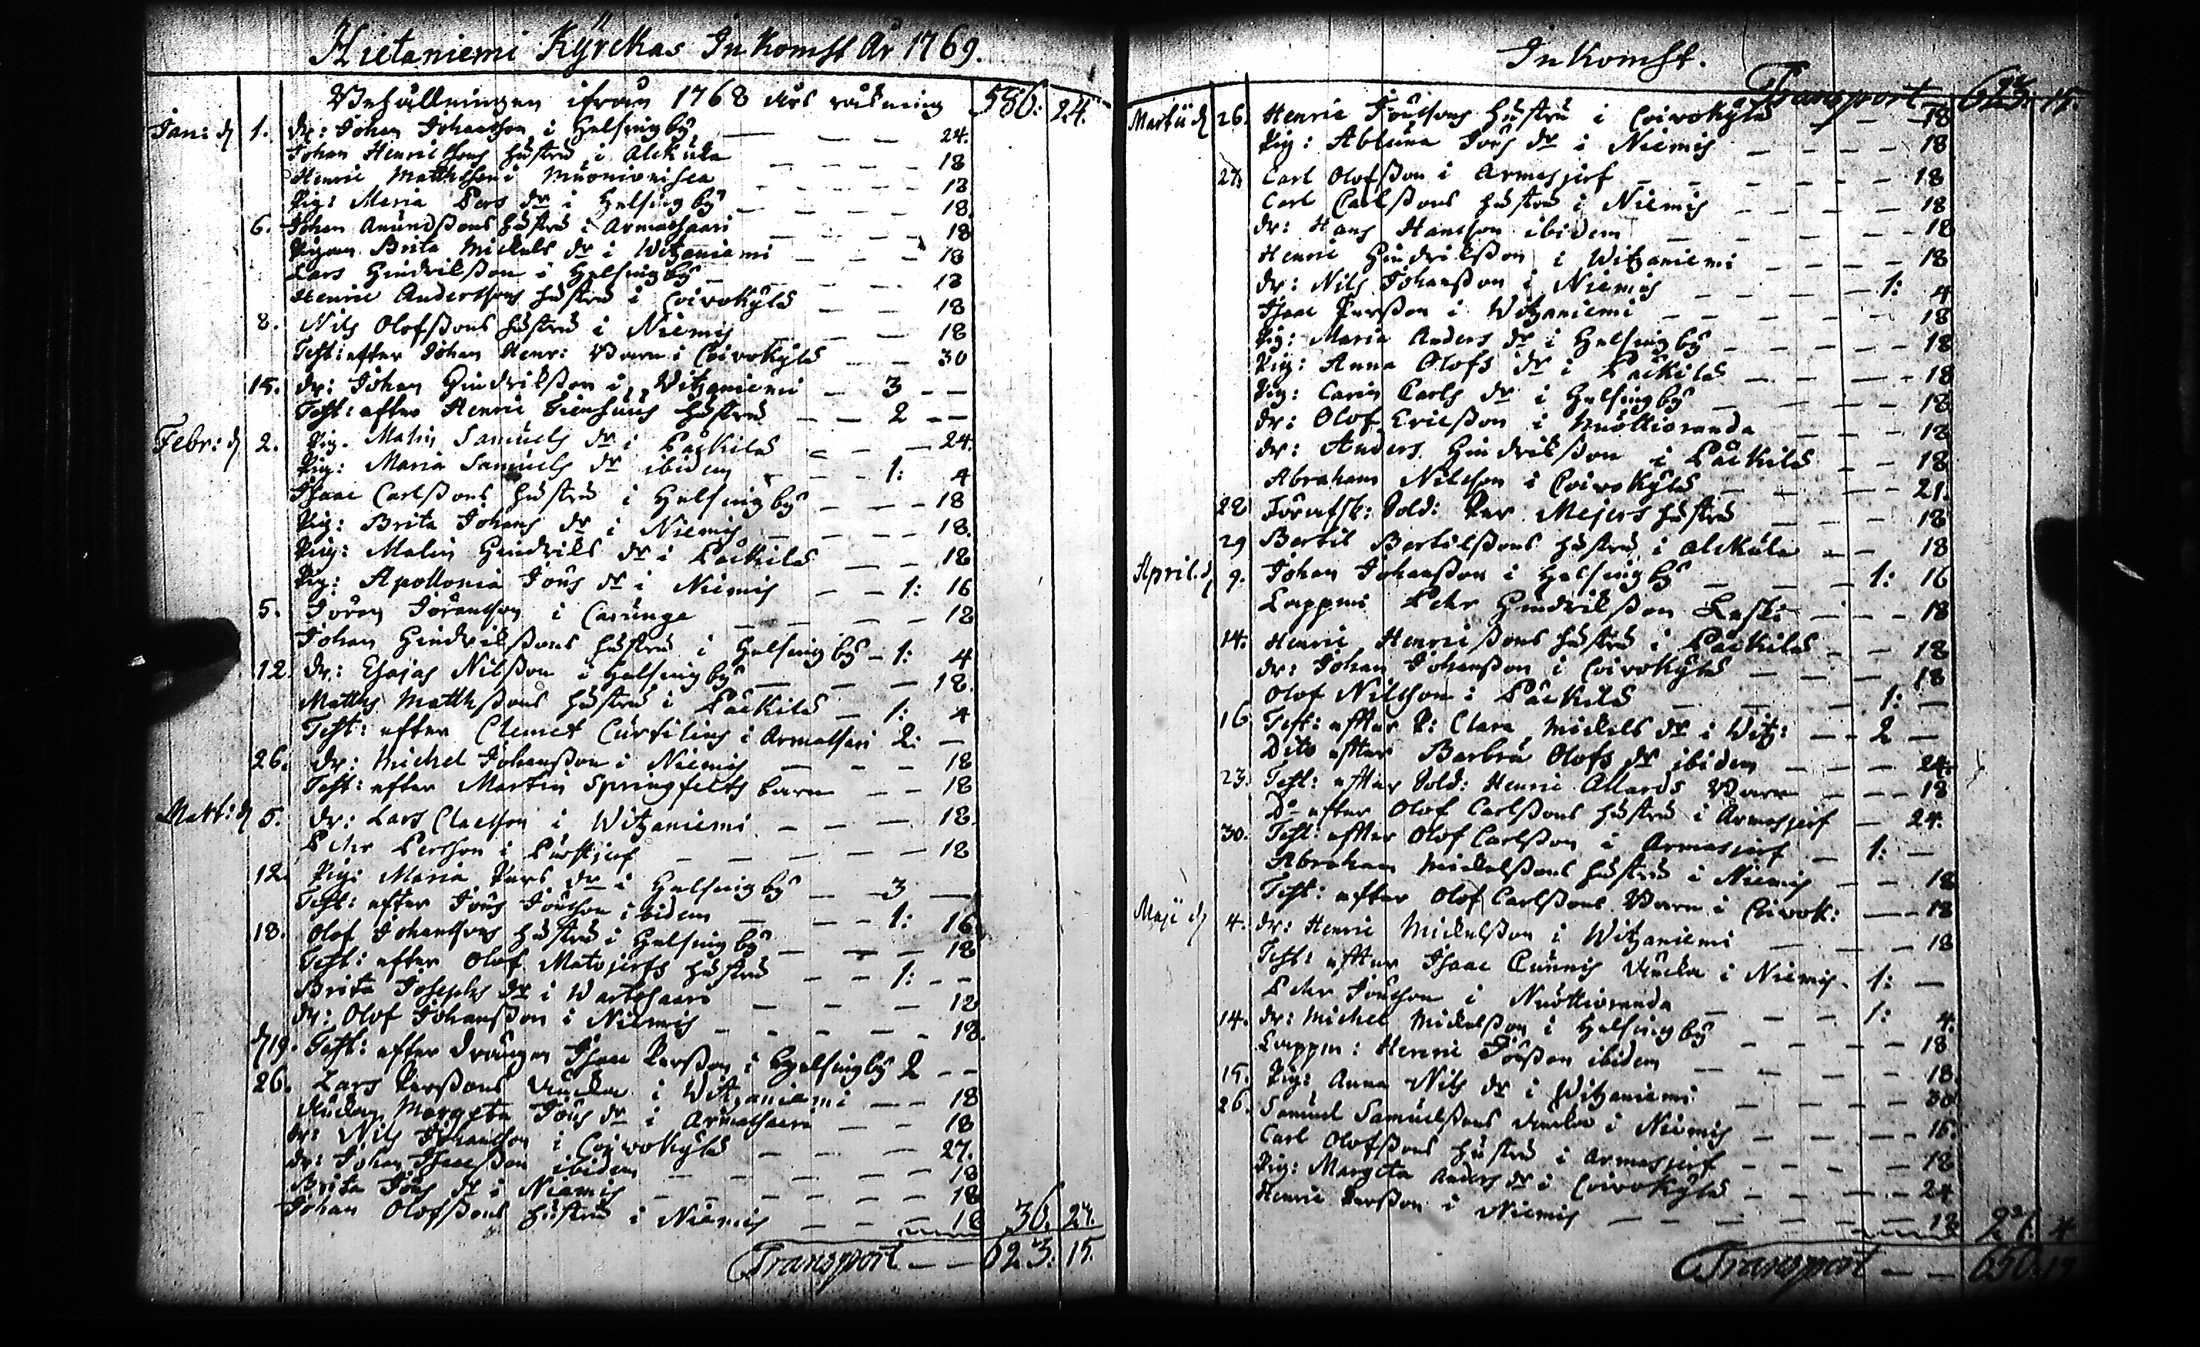 Hietaniemi Kÿrckas Inkomst År 1769.
Behållningen ifrån 1768 års räkning 586: 24.
Jan: d 1. dr: Johan Johansson i Helsingbÿ — — — 24.
Johan Henricssons hustru i Alckula — — — 18
Henric Matthsson i Muonionisca — — — 18
Pig: Maria Pers dr i Helsingbÿ — — — 18.
6. Johan Amundssons hustru i Armassaari — — — 18
Pigan Brita Mickels dr i Witzaniemi — — — 18
Lars Hindriksson i Helsingbÿ — — — 18
Henric Anderssons hustru i Coivokÿlä — — — 18
8. Nils Olofssons hustru i Niemis — — — 18
Test: efter Johan Henr: Barn i Coivokÿlä — — 30
15. dr: Johan Hindriksson i Witzaniemi — 3 — —
Test: efter Henric hustru — — 2 — —
Febr: d 2. Pig. Malin Samuels dr i Päckilä — — 24.
Pig: Maria Samuels dr ibidem — — 1: 4
Isaac Carlssons hustru i Helsingbÿ — — — 18
Pig: Brita Johans dr i Niemis — — — 18.
Pig: Malin Hindriks dr i Päckilä — — — 18
Pig: Apollonia Jöns dr i Niemis — — 1: 16
5. Jöran Jöransson i Carunge — — — 18
Johan Hindrikssons hustru i Helsingbÿ — 1: 4
12. dr: Esajas Nilsson i Helsingbÿ — — — 18.
Matths Matthssons hustru i Päckilä — 1: 4
Test: efter Clemet Curtilius i Armassari 2: —
26. dr: Michel Johansson i Niemis — — — 18
Test: efter Martin Springfelts barn — — 18
Mart: d 5. dr: Lars Claesson i Witzaniemi — — — 18.
Pehr Persson i — — — 18
12. Pig: Maria Pers dr i Helsingbÿ — 3 —
Test: efter Jöns Jönsson ibidem — — 1: 16.
18. Olof Johanssons hustru i Helsingbÿ — — — 18
Test: efter Olof Matojerfs hustru — — 1: — —
Brita Josephs dr i — — — 18
dr: Olof Johansson i Niemis — — — 18.
d 19. Test: efter drängen Isaac Persson i Helsingbÿ 2 — —
26. Lars Perssons Änka i Witzaniemi — — 18
Änkan Margeta Jöns dr i Armassaari — — 18
dr: Nils Johansson i Coivokÿlä — — — 27.
dr: Johan Isacsson ibidem — — — 18
Brita Jöns dr i Niemis — — — 18
Johan Olofssons hustru i Niemis — — — 18 36. 27.
Transport — — 623: 15.
Inkomst.
Transport — 623: 15.
Martii d 26. Henric Jönssons hustru i Coivokÿlä — — 18
Pig: Abluna Jöns dr i Niemis — — — 18
27. Carl Olofsson i Armasjerf — — — 18
Carl Carlssons hustru i Niemis — — — 18
dr: Hans Hansson ibidem — — — 18
Henric Hindriksson i Witzaniemi — — — 18
dr: Nils Johansson i Niemis — — 1: 4
Isaac Persson i Witzaniemi — — — 18
Pig: Maria Anders dr i Helsingbÿ — — — 18
Pig: Anna Olofs dr i Päckilä — — — 18
Pig: Carin Carls dr i Helsingbÿ — — — 18
dr: Olof Ericsson i Nuottioranda — — — 18
dr: Anders Hindriksson i Päckilä — — 18
Abraham Nilsson i Coivokÿlä — — — 21.
28 Sold: Per Mejers hustru — — — 18
29 Bertil Bertilssons hustru i Alckula — — 18
April. d 9. Johan Johansson i Helsingbÿ — — 1: 16
Lappen Pehr Hindriksson — — — 18
14. Henric Henricssons hustru i Päckilä — — 18
dr: Johan Johansson i Coivokÿlä — — — 18
Olof Nilsson i Päckilä — — 1: —
16 Test: efter P: Clara Mickels dr i Witz: — — 2 —
Dito efter Barbru Olofs dr ibidem — — — 24.
23. Test: efter Sold: Henric Allards Barn — — — 18
Do efter Olof Carlssons hustru i Armasjerf — 24.
30. Test: efter Olof Carlsson i Armasjerf — 1: —
Abraham Mickelssons hustru i Niemis — — 18
Test: efter Olof Carlssons Barn i Coivok: — — 18
Maji d 4. dr: Henric Mickelsson i Witzaniemi — — — 18
Test: efter Isaac Cunnis Änka i Niemis. 1: —
Pehr Jönsson i Nuottioranda — — 1: 4.
14. dr: Michel Mickelsson i Helsingbÿ — — — 18
Lappen: Henric Jönsson ibidem — — — 18.
15. Pig: Anna Nils dr i Witzaniemi — — — 30
26. Samuel Samuelssons Änka i Niemis — — — 15.
Carl Olofssons hustru i Armasjerf — — — 18
Pig: Margeta Anders dr i Coivokÿlä — — — 24
Henric Persson i Niemis — — — 18 27. 4
Transport — — 650: 19